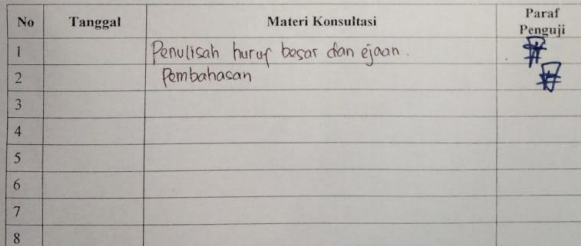 No Tanggal Materi Konsultasi Paraf Penguji
1 Penulisah huruf besar dan ejaan.
2 Pembahasan
3
4
5
6
7
8